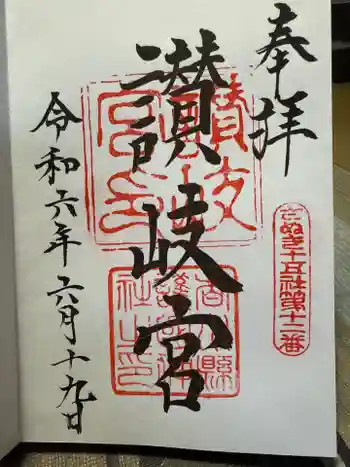 奉拝
さぬき十五社第十二番
讃岐宮
讃岐宮印
令和六年六月十九日